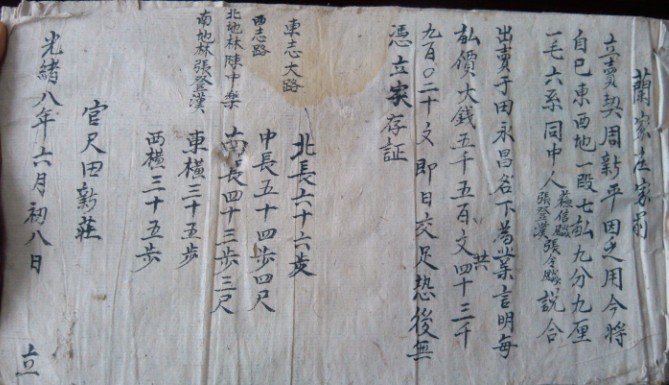 蘭家庄家前
立賣契周新平因乏用今將
自己東西地一段七畝九分九厘
一毛六系同中人
張登漢
張金
說合
出賣于田永昌名下為業言明每
畝價大錢五千五百文四十三千
共
九百〇二十文即日交足恐後無
憑立字存証
東志大路
西志路
北地林陳中樂
南地林張登漢
北長六十六步
中長五十四步四尺
南長四十三步三尺
東橫三十五步
西橫三十五步
官尺田新莊
光緒八年六月初八日
立